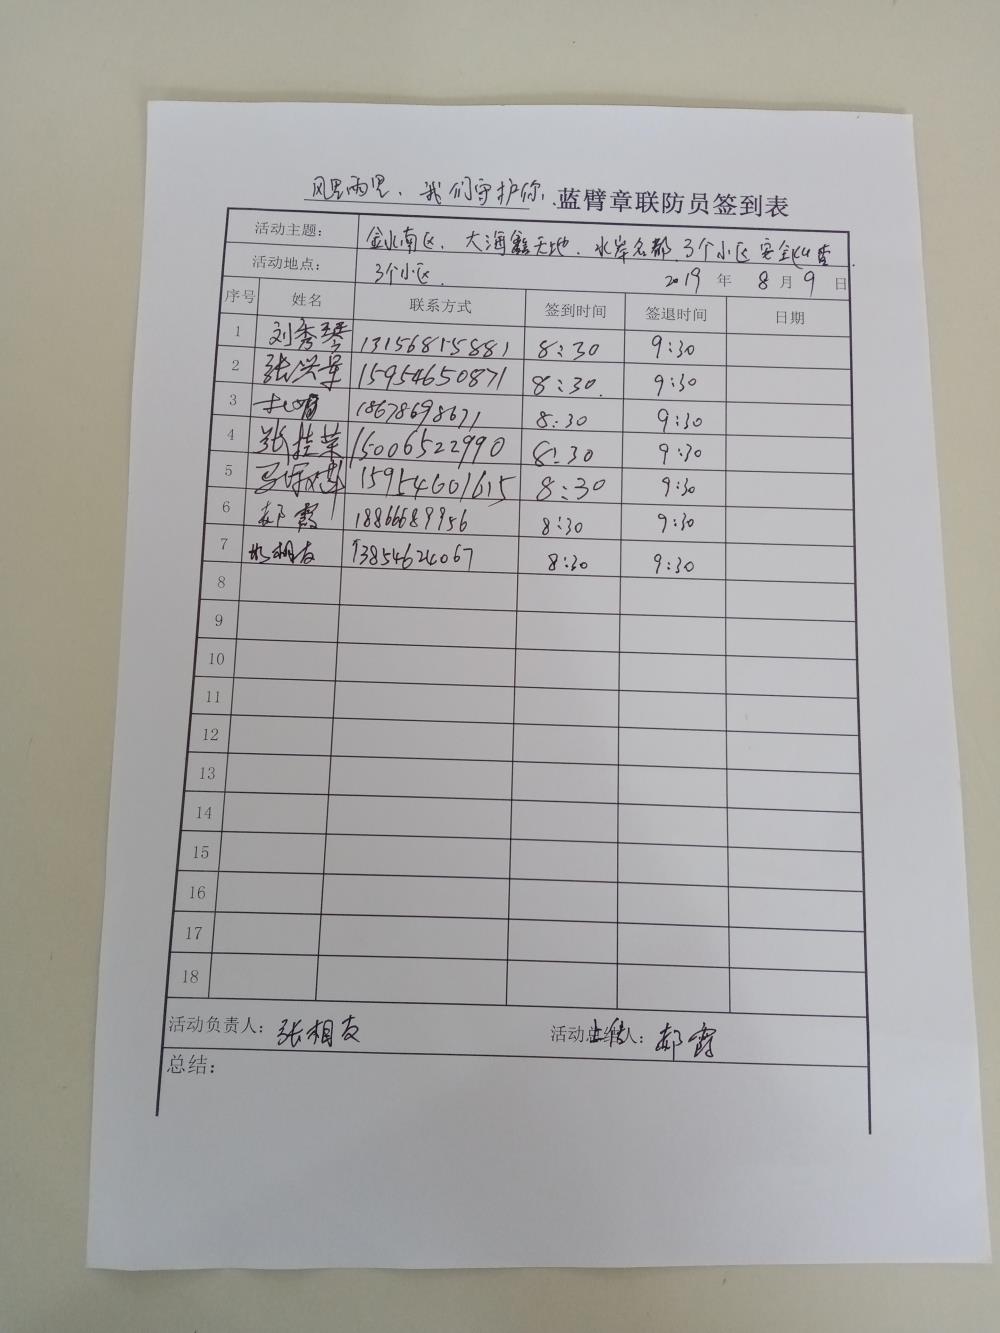 风里雨里、我们守护你、蓝臂章联防员签到表
活动主题： 金水南区、大海鑫天地、水岸名都、3个小区安全检查
活动地点： 3个小区 2019 年 8 月 9 日
序号 姓名 联系方式 签到时间 签退时间 日期
1 刘秀琴 13156815881 8:30 9:30
2 张兴军 15954650871 8:30 9:30
3 18678698671 8:30 9:30
4 张桂荣 15006522990 8:30 9:30
5 15954601615 8:30 9:30
6 郝霞 18866689956 8:30 9:30
7 张相友 13854624067 8:30 9:30
8
9
10
11
12
13
14
15
16
17
18
活动负责人： 张相友 活动总结人： 上传 郝霞
总结：